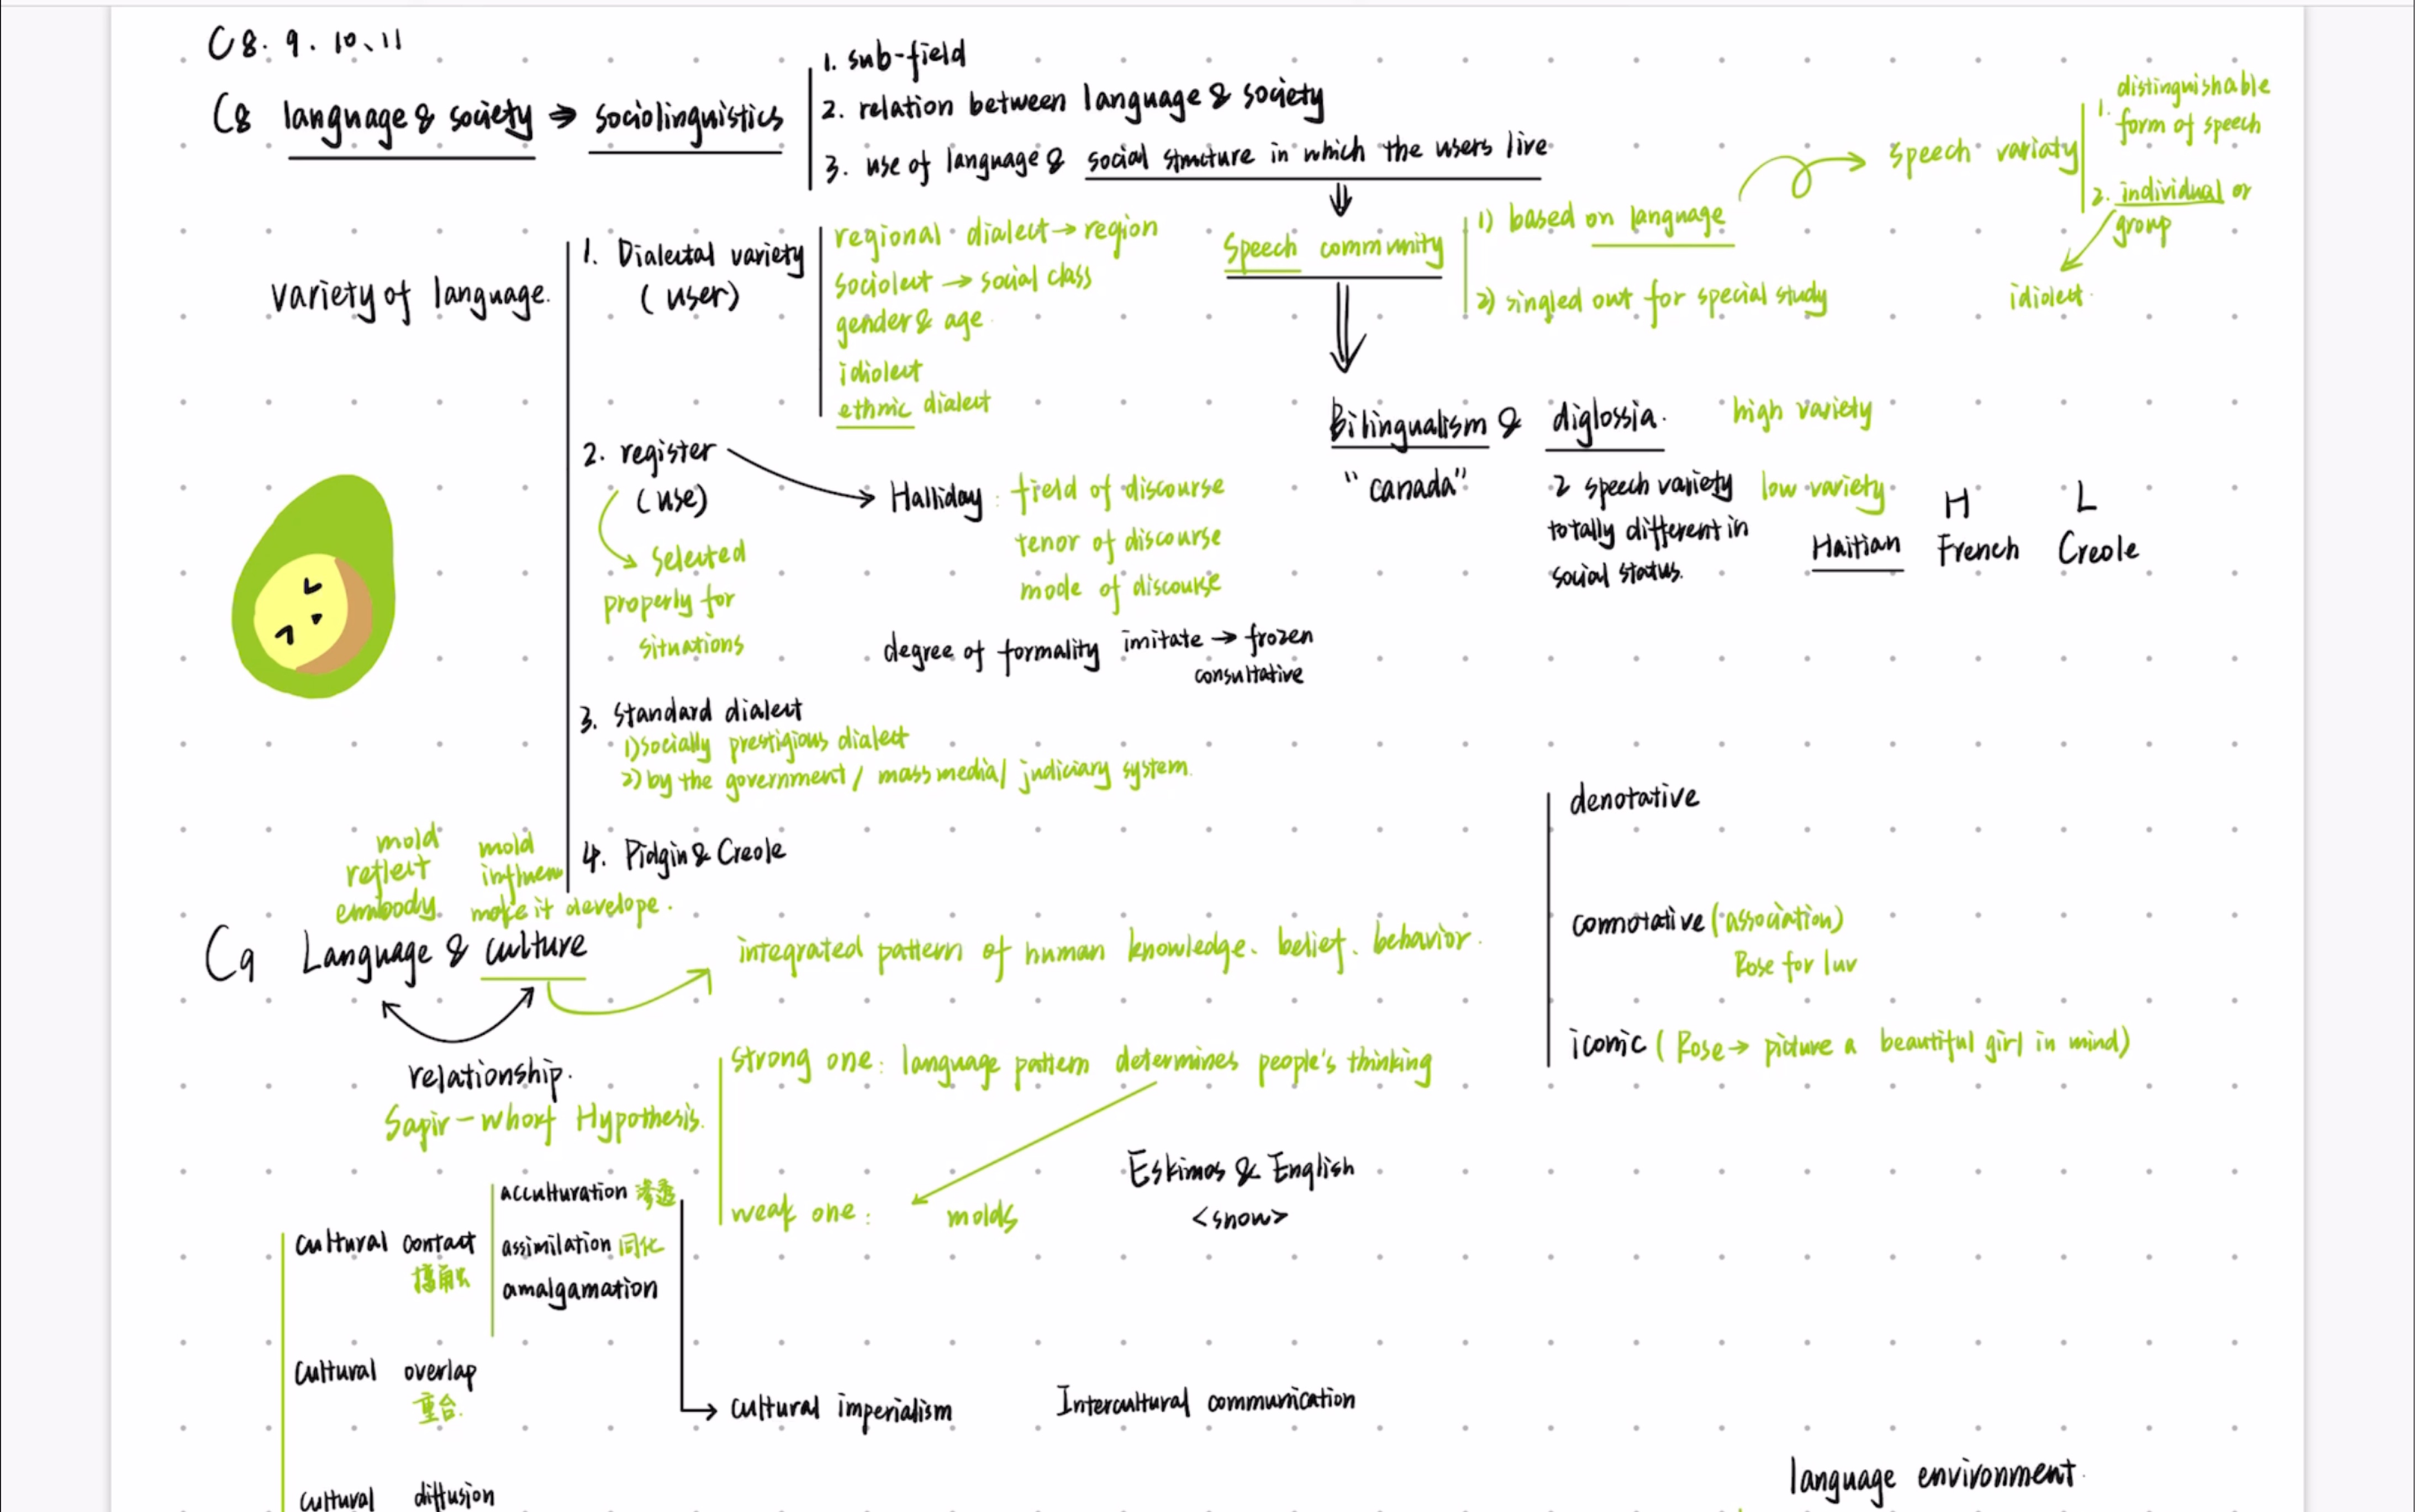 C8. 9. 10、11
C8 language & society → sociolinguistics
1. sub-field
2. relation between language & society
3. use of language & social structure in which the users live
speech variaty
1. distinguishable
form of speech
2. individual or
group
idiolect
speech community
1) based on language
2) singled out for special study
variety of language
1. Dialectal variety
(user)
regional dialect → region
sociolect → social class
gender & age
idiolect
ethnic dialect
Bilingualism & diglossia.
"canada"
2 speech variety
totally different in
social status.
high variety
low variety
H L
Haitian French Creole
2. register
(use)
selected
properly for
situations
Halliday: field of discourse
tenor of discourse
mode of discourse
degree of formality imitate → frozen
consultative
3. standard dialect
1) socially prestigious dialect
2) by the government / mass media / judiciary system.
4. Pidgin & Creole
denotative
connotative (association)
Rose for luv
iconic (Rose → picture a beautiful girl in mind)
mold
reflect
embody
mold
influen
make it develope.
C9 Language & culture
integrated pattern of human knowledge、belief、behavior.
relationship.
Sapir-whorf Hypothesis.
strong one: language pattern determines people's thinking
weak one: molds
Eskimos & English
<snow>
cultural contact
acculturation 渗透
assimilation 同化
amalgamation
cultural overlap
重合
cultural imperialism
Intercultural communication
cultural diffusion
language environment